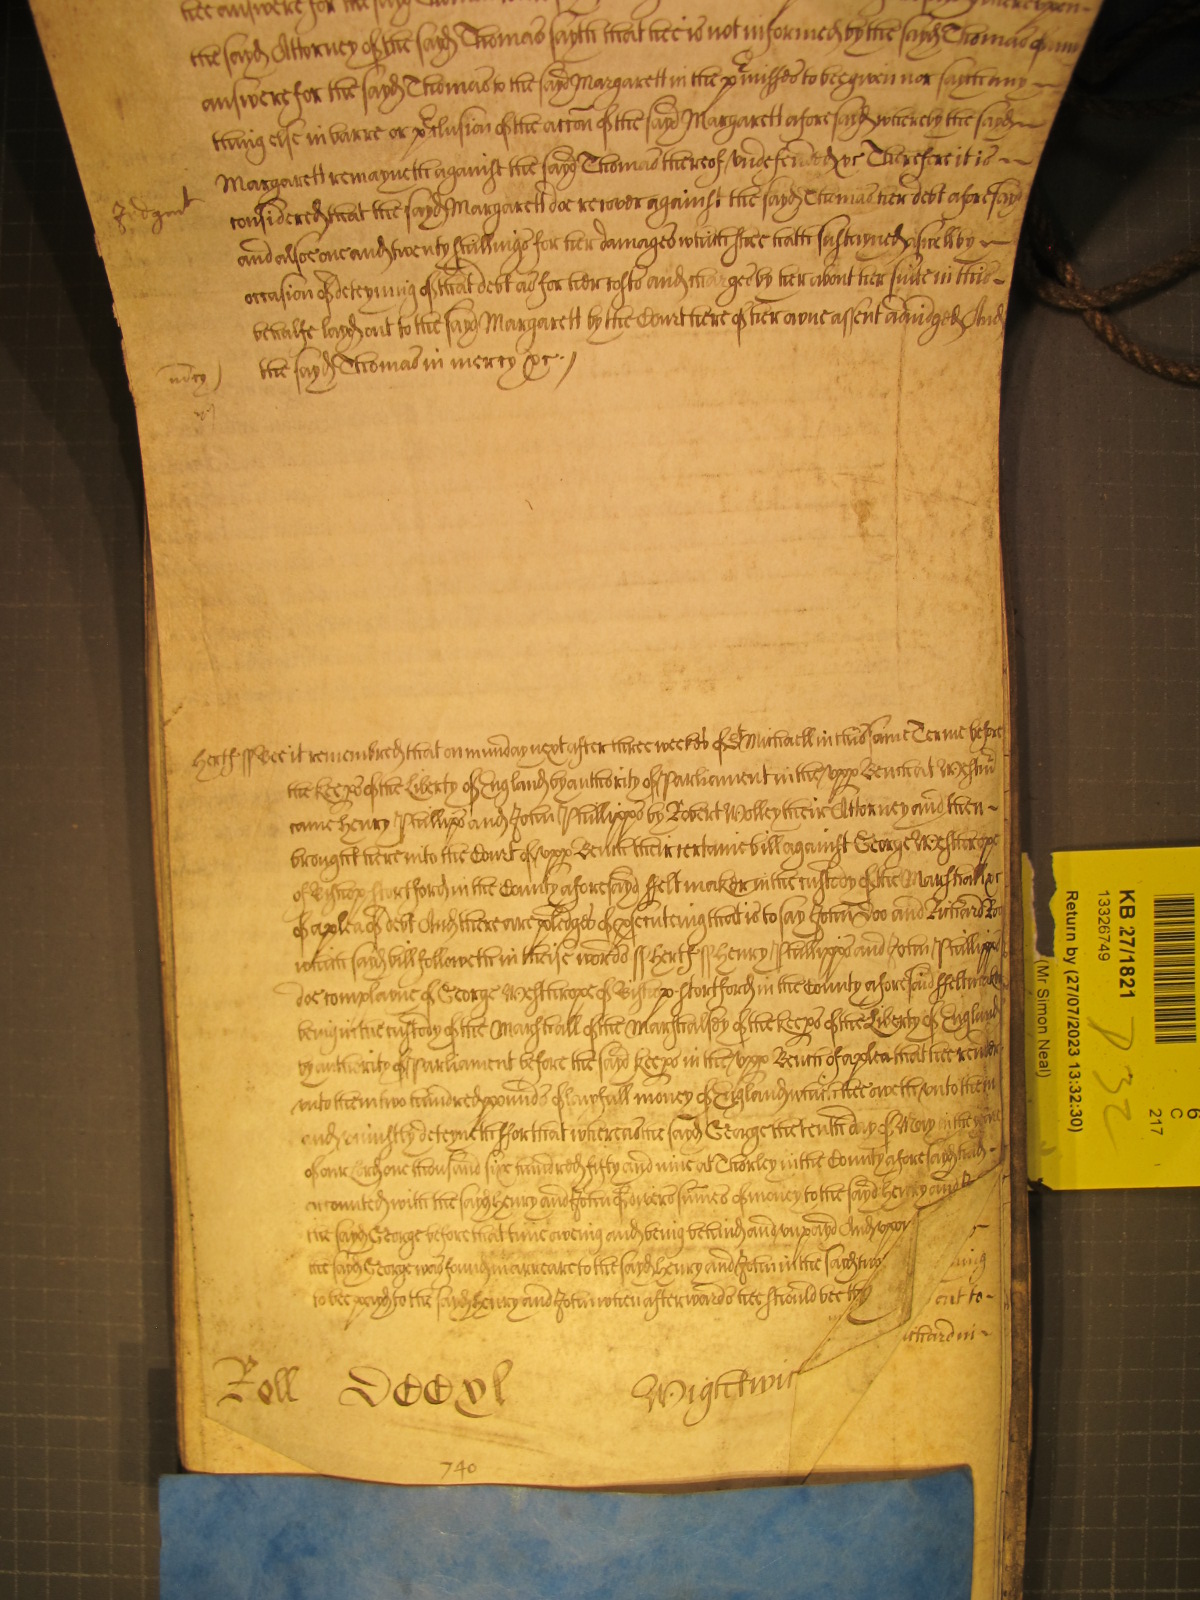 the sayd Attorney of the sayd Thomas sayth that hee is not informed by the sayd Thomas of any
answere for the sayd Thomas to the sayd Margarett in the p'misses to bee given nor sayth any
thing else in barre or p'clusion of the accon of the sayd Margarett aforesayd whereby the sayd
Margarett remayneth against the sayd Thomas thereof undefended &c Therefore it is
Judgmt
considered that the sayd Margarett doe recover against the sayd Thomas her debt aforesayd
and alsoe one and twenty shillings for her damages which shee hath susteyned aswell by
occasion of deteyning of that debt as for her costs and charges by her about her suite in this
behalfe layd out to the sayd Margarett by the Court here of her owne assent adiudged And
the sayd Thomas in mercy &c
mercy
Hertf ss Bee it remembred that on munday next after three weeks of St Michaell in this same Terme before
the Keeps of the Liberty of England by authority of Parliament in the upp Bench at Westm
came Henry Phillipps and John Phillipps by Robert Wolley their Attorney and then
brought here into the Court of upp Bench their certaine bill against George Westhrope
of Bishop Stortford in the County aforesayd Feltmaker in the custody of the Marshall &c
of a plea of debt And there are pledges of p'secuteing that is to say John Doo and Richard Roo
which sayd bill followeth in theise words ss Hertf ss Henry Phillipps and John Phillipps
doe complayne of George Westhrope of Bishop Stortford in the County aforesaid Feltmaker
being in the custody of the Marshall of the Marshalsey of the Keeps of the Liberty of England
by authority of Parliament before the sayd Keeps in the upp Bench of a plea that hee render
unto them two hundred pounds of lawfull money of England which hee oweth unto them
and uniustly deteyneth For that whereas the sayd George the tenth day of May in the yeare
of our Lord one thousand six hundred fifty and nine at Thorley in the County aforesayd had
accounted with the sayd Henry and John of divers sumes of money to the sayd Henry and
the sayd George before that time oweing and being behind and unpayd And upon
the sayd George was found in arreare to the sayd Henry and John in the sayd two
to bee payd to the sayd Henry and John when afterwards hee should bee
ent to
Roll DCCxl
Wightwick
740
KB 27/1821
13326749
Return by (27/07/2023 13:32:30)
(Mr Simon Neal)
6
C
217